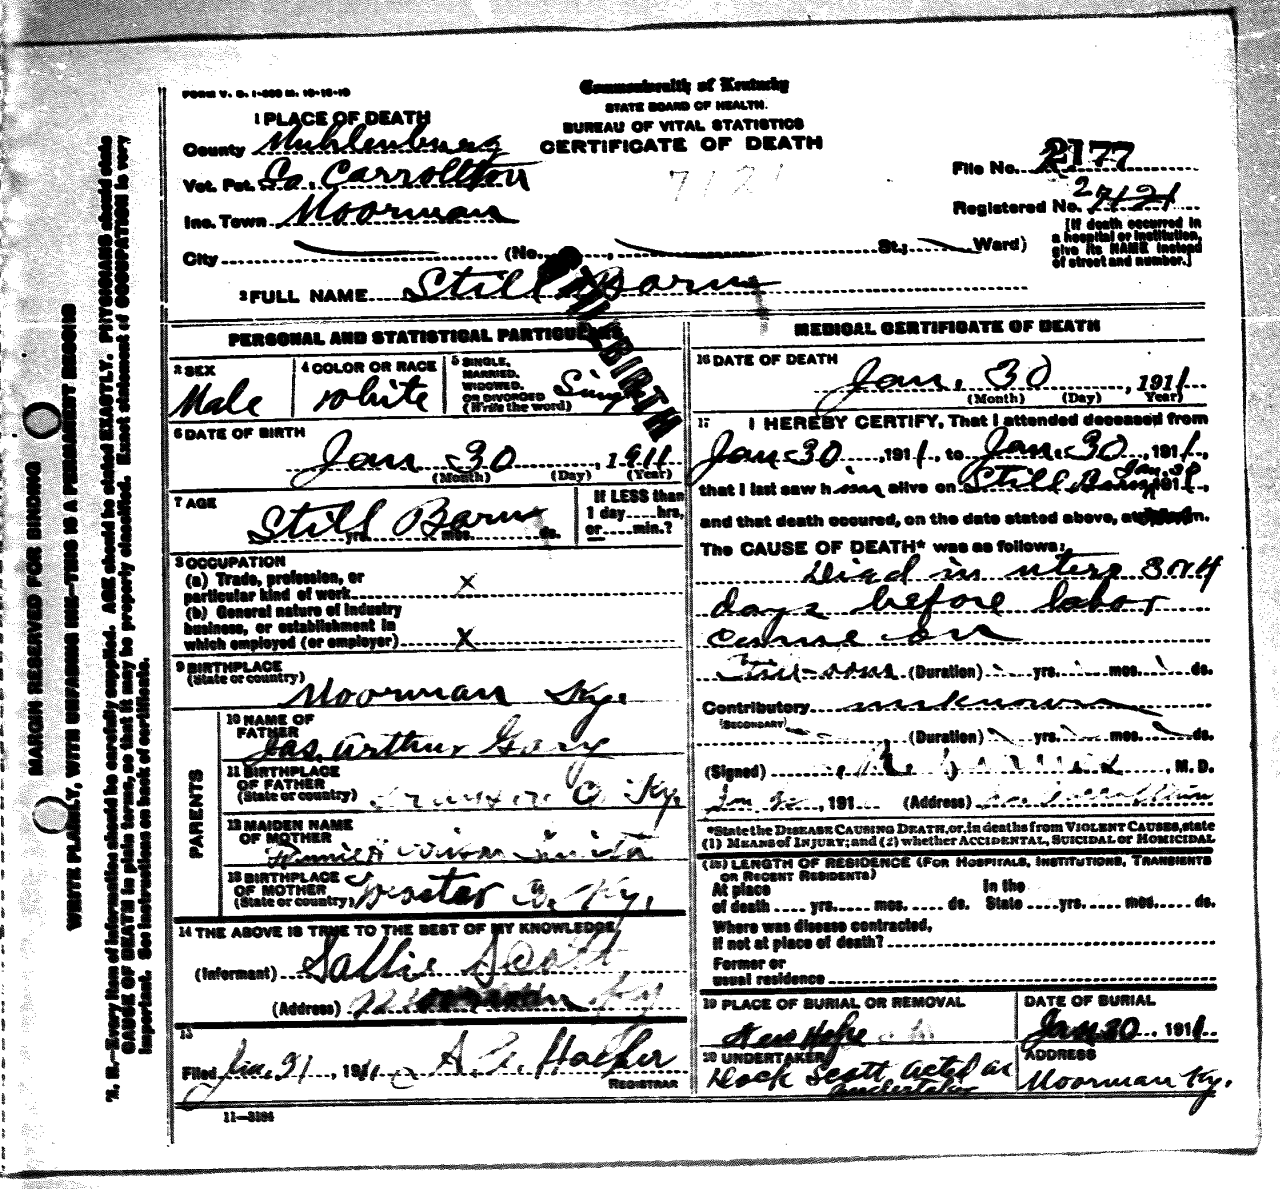 FORM V. S. 1-
Commonwealth of Kentucky
STATE BOARD OF HEALTH.
BUREAU OF VITAL STATISTICS
CERTIFICATE OF DEATH
7121
1 PLACE OF DEATH
County Muhlenburg
Vot. Pct. So. Carrollton
Inc. Town Moorman
City (No. , St.; Ward)
File No. 2177
Registered No. 2 7121
[If death occurred in
a hospital or institution,
give its NAME instead
of street and number.]
2 FULL NAME Still Born
STILLBIRTH
PERSONAL AND STATISTICAL PARTICULARS
3 SEX
Male
4 COLOR OR RACE
White
5 SINGLE,
MARRIED,
WIDOWED,
OR DIVORCED
(Write the word)
Single
6 DATE OF BIRTH
Jan 30, 1911
(Month) (Day) (Year)
7 AGE
Still Born
yrs. mos. ds.
If LESS than
1 day hrs,
or min.?
8 OCCUPATION
(a) Trade, profession, or
particular kind of work x
(b) General nature of industry
business, or establishment in
which employed (or employer) x
9 BIRTHPLACE
(State or country)
Moorman Ky.
PARENTS
10 NAME OF
FATHER
Jas. Arthur Gary
11 BIRTHPLACE
OF FATHER
(State or country) Ky.
12 MAIDEN NAME
OF MOTHER
13 BIRTHPLACE
OF MOTHER
(State or country) Webster Co. Ky.
14 THE ABOVE IS TRUE TO THE BEST OF MY KNOWLEDGE
(Informant) Sallie Scott
(Address) Moorman Ky
15
Filed Jan. 31, 1911
REGISTRAR
11—3184
MEDICAL CERTIFICATE OF DEATH
16 DATE OF DEATH
Jan. 30, 1911
(Month) (Day) Year)
17 I HEREBY CERTIFY, That I attended deceased from
Jan 30, 1911, to Jan. 30, 1911,
that I last saw him alive on Still Born Jan. 30 1911,
and that death occured, on the date stated above, at m.
The CAUSE OF DEATH* was as follows:
Died in utero 3 or 4
days before labor
came on
(Duration) yrs. mos. ds.
Contributory unknown
(SECONDARY)
(Duration) yrs. mos. ds.
(Signed) , M. D.
, 191 (Address) So. Carrollton
*State the DISEASE CAUSING DEATH, or, in deaths from VIOLENT CAUSES, state
(1) MEANS OF INJURY; and (2) whether ACCIDENTAL, SUICIDAL or HOMICIDAL
(18) LENGTH OF RESIDENCE (FOR HOSPITALS, INSTITUTIONS, TRANSIENTS
OR RECENT RESIDENTS)
At place
of death yrs. mos. ds.
In the
State yrs. mos. ds.
Where was disease contracted,
if not at place of death?
Former or
usual residence
19 PLACE OF BURIAL OR REMOVAL
New Hope
DATE OF BURIAL
Jan 30, 1911
20 UNDERTAKER
Dock Scott acted as
undertaker
ADDRESS
Moorman Ky.
MARGIN RESERVED FOR BINDING
WRITE PLAINLY, WITH UNFADING INK—THIS IS A PERMANENT RECORD
N. B.—Every item of information should be carefully supplied. AGE should be stated EXACTLY. PHYSICIANS should state
CAUSE OF DEATH in plain terms, so that it may be properly classified. Exact statement of OCCUPATION is very
important. See instructions on back of certificate.